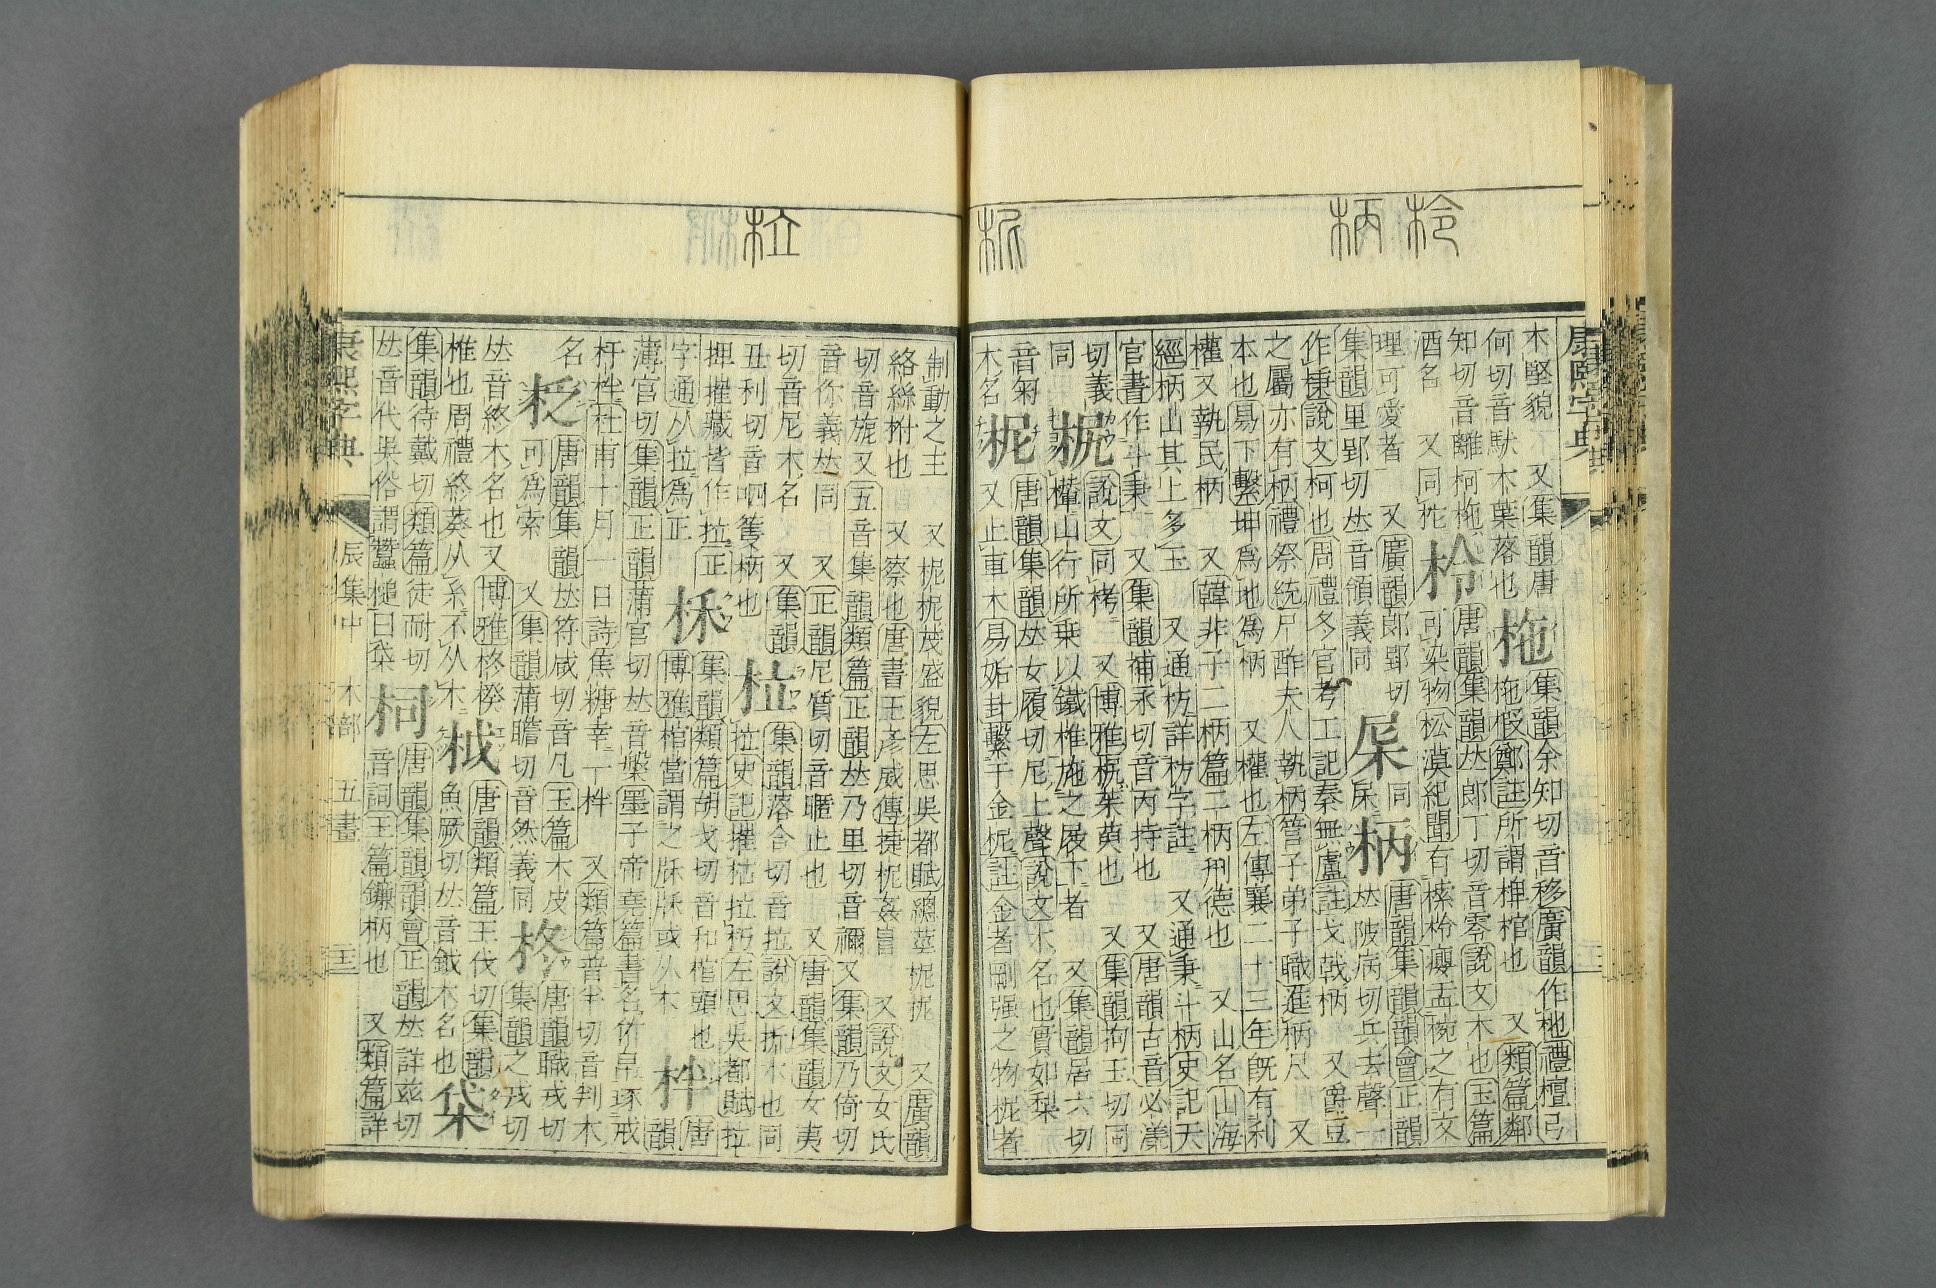 柃
柄
柅
木堅貌 又集韻唐
何切音馱木葉落也
柂
集韻余知切音移廣韻作杝禮檀弓
知切音離柯柂
柂椵鄭註所謂椑棺也 又類篇鄰
酒名 又同柁
柃
唐韻集韻𠀤郎丁切音零說文木也玉篇
理可愛者 又廣韻郞郢切
可染物松漠紀聞有榡柃癭盂椀之有文
集韻里郢切𠀤音領義同
杘
同
柄
唐韻集韻韻會正韻
作棅說文柯也周禮冬官考工記秦無盧註戈戟柄 又爵豆
𠀤陂病切兵去聲
之屬亦有柄禮祭統尸酢夫人執柄管子弟子職進柄尺 又
本也易下繫坤爲地爲柄 又權也左傳襄二十三年旣有利
權又執民柄 又韓非子二柄篇二柄刑德也 又山名山海
經柄山其上多玉 又通枋詳枋字註 又通秉斗柄史記天
官書作斗秉 又集韻補永切音丙持也 又唐韻古音必漾
切義同
柅
說文同栲 又博雅柅茱萸也 又集韻拘玉切同
同
欙山行所乗以鐵椎施之屐下者 又集韻居六切
音匊
柅
唐韻集韻𠀤女履切尼上聲說文木名也實如梨
木名
又止車木易姤卦繫于金柅註金者剛强之物柅者
制動之主 又柅柅茂盛貌左思吳都賦總莖柅柅 又廣韻
絡絲柎也 又察也唐書王彥威傳捷柅姦冒 又說文女氏
切音旎又五音集韻類篇正韻𠀤乃里切音禰又集韻乃倚切
音你義𠀤同 又正韻尼質切音暱止也 又唐韻集韻女夷
切音尼木名 又集韻
柆
集韻落合切音拉說文折木也同
丑利切音呬篗柄也
拉史記摧枯拉朽左思吳都賦拉
押摧藏皆作拉正
柇
集韻類篇胡戈切音和棺頭也
字通从拉爲正
博雅棺當謂之𤖬𤖬或从木
柈
唐
韻
薄官切集韻正韻蒲官切𠀤音槃墨子帝堯篇書名竹帛琢戒
杅柈杜甫十月一日詩焦糖幸一柈 又類篇普半切音判木
名
柉
唐韻集韻𠀤符咸切音凡玉篇木皮
可爲索 又集韻蒲瞻切音然義同
柊
唐韻職戎切
集韻之戎切
𠀤音終木名也又博雅柊楑
椎也周禮終葵从糸不从木
柭
唐韻類篇王伐切集韻
魚厥切𠀤音鉞木名也
柋
集韻待戴切類篇徒耐切
𠀤音代吳俗謂蠶槌曰柋
柯
唐韻集韻韻會正韻𠀤詳茲切
音詞玉篇鐮柄也 又類篇詳
康熙字典
辰集中 木部 五畫